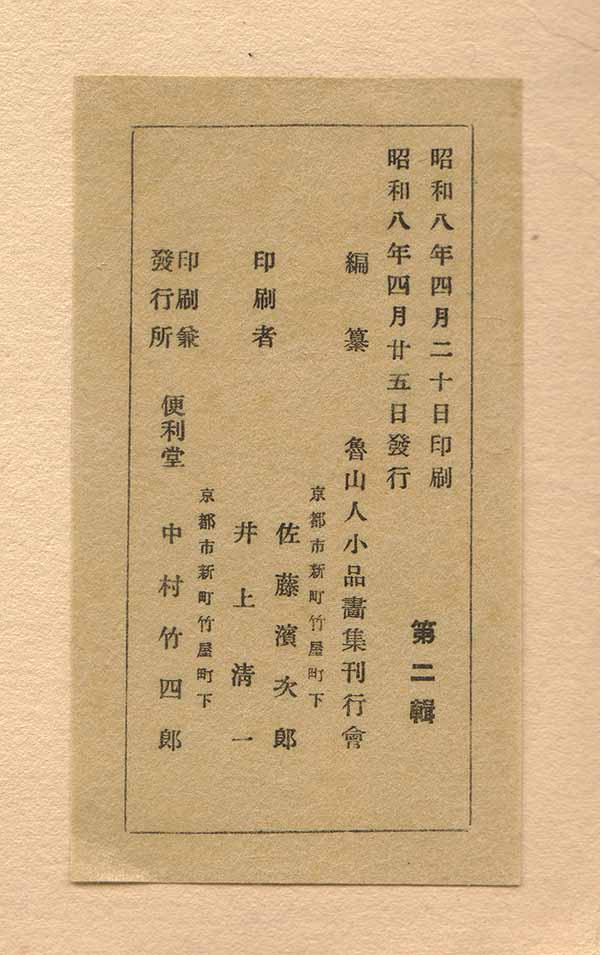 昭和八年四月二十日印刷
昭和八年四月廿五日發行
第二輯
編纂 魯山人小品畵集刊行會
京都市新町竹屋町下
印刷者 佐藤濱次郎
井上淸一
京都市新町竹屋町下
印刷兼
發行所 便利堂 中村竹四郎